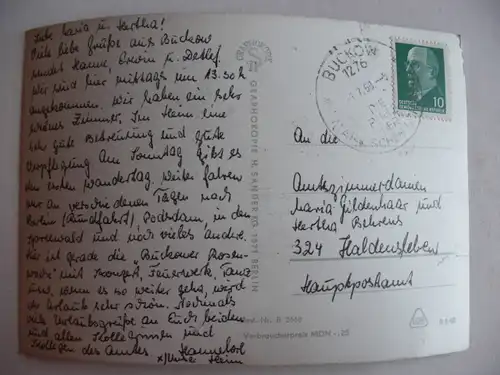 Liebe Maria u. Hertha!
Viele liebe Grüße aus Buckow
sendet Hanne, Erwin u. Detlef.
Wir sind hier mittags um 13.50 h
angekommen. Wir haben ein sehr
schönes Zimmer. Im Heim eine
sehr gute Betreuung und gute
Verpflegung. Am Sonntag gibt es
den ersten Wandertag. Weiter fahren
wir an verschiedenen Tagen nach
Berlin (Rundfahrt), Potsdam, in den
Spreewald und noch vieles andere.
Hier ist gerade die „Buckower Rosen-
woche" mit Konzert, Feuerwerk, Tanz
usw. wenn es so weiter geht, wird
der Urlaub sehr schön. Nochmals
viele Urlaubsgrüße an Euch beiden
und allen Kolleginnen und
Kollegen des Amtes Hannelore
x) unser Heim
GRAPHOKOPIE H. SANDER KG, 1071 BERLIN
BUCKOW
1276
10
An die
Amtszimmerdamen
Maria Gildenhaar und
Hertha Behrens
324 Haldensleben
Hauptpostamt
Verbraucherpreis MDN -,20